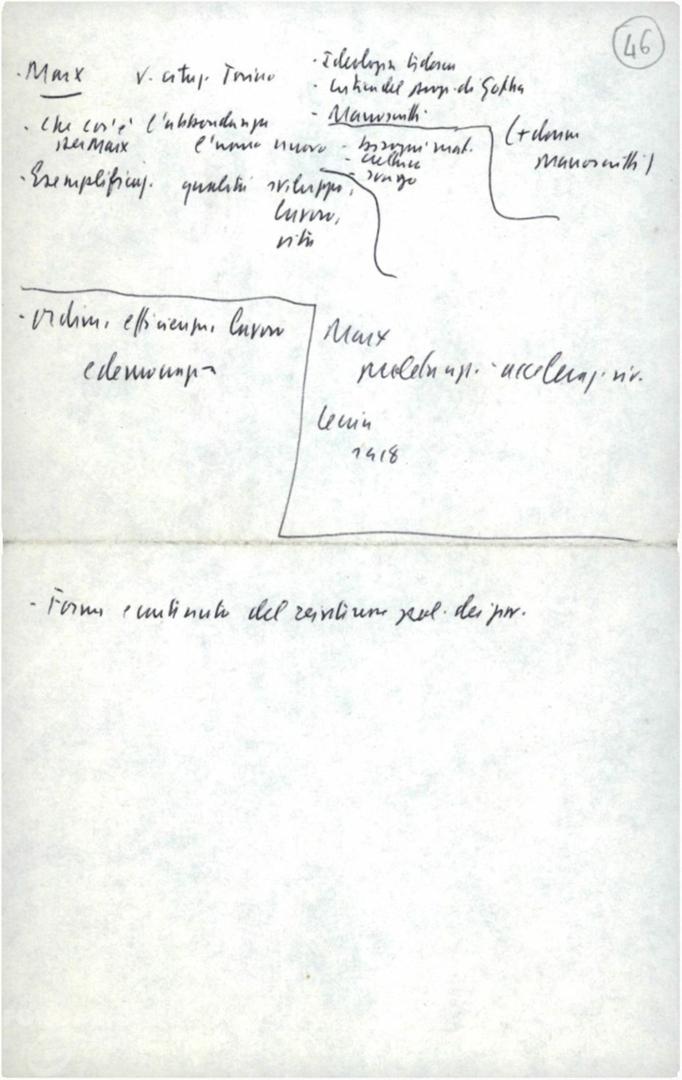 46
· Marx v. citaz. Torino
· Ideologia tedesca
· Critica del progr. di Gotha
· Manoscritti
(+ donna Manoscritti)
· Che cos'è l'abbondanza per Marx
l'uomo nuovo
- bisogni mat.
- cultura
- svago
· Esemplificaz. qualità sviluppo,
lavoro,
vita
· ordine, efficienza, lavoro
e democrazia
Marx
acceleraz. riv.
Lenin
1918
- Forma e contenuto del pol. dei